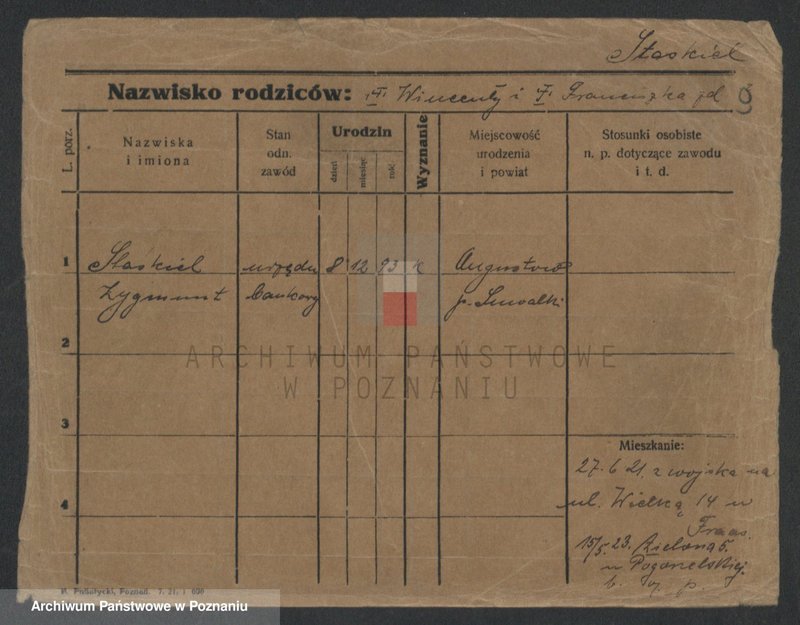 Staskiel
Nazwisko rodziców: Wincenty i Franciszka zd
L. porz.
Nazwiska
i imiona
Stan
odn.
zawód
Urodzin
dzień
miesiąc
rok
Wyznanie
Miejscowość
urodzenia
i powiat
Stosunki osobiste
n. p. dotyczące zawodu
i t. d.
1
Staskiel urzędn 8 12 93 k Augustów
Zygmunt bankowy p. Suwalki
2
ARCHIWUM PAŃSTWOWE
W POZNANIU
3
Mieszkanie:
27. 6 21. z wojska na
4
ul. Wielką 14 u
15/5. 23. Zielona 5.
u Pogonelskiej.
Poznań. 7. 21.
Archiwum Państwowe w Poznaniu